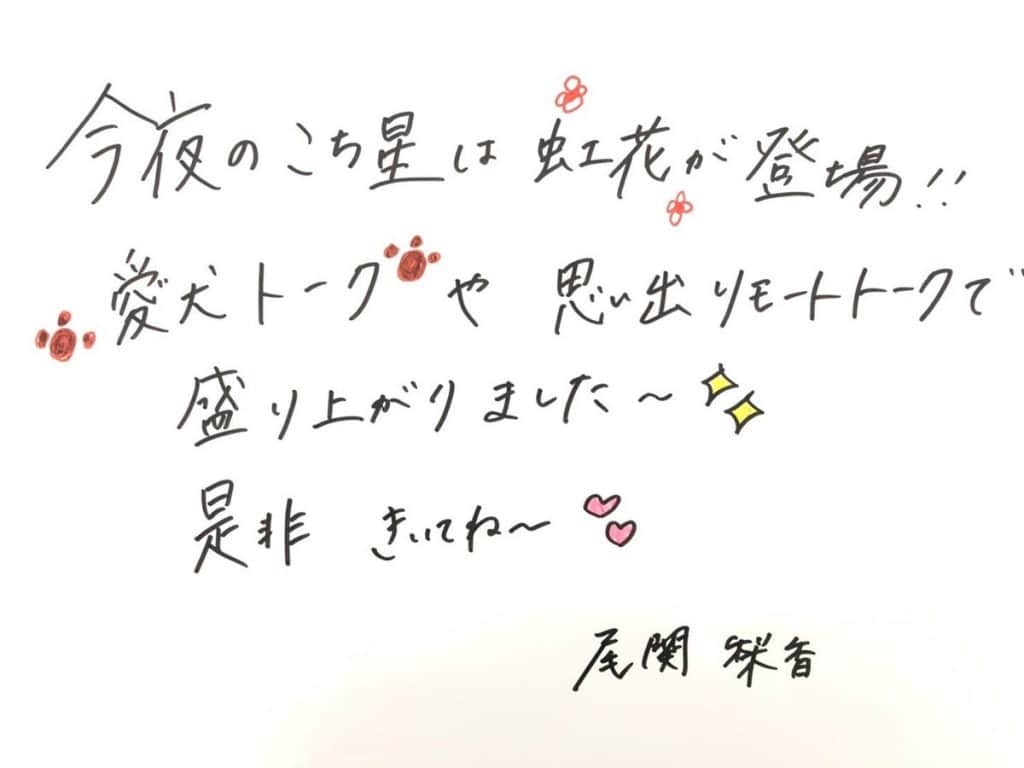 今夜のこち星は虹花が登場!!
愛犬トークや思い出リモートトークで
盛り上がりました〜
是非 きいてね〜
尾関 梨香